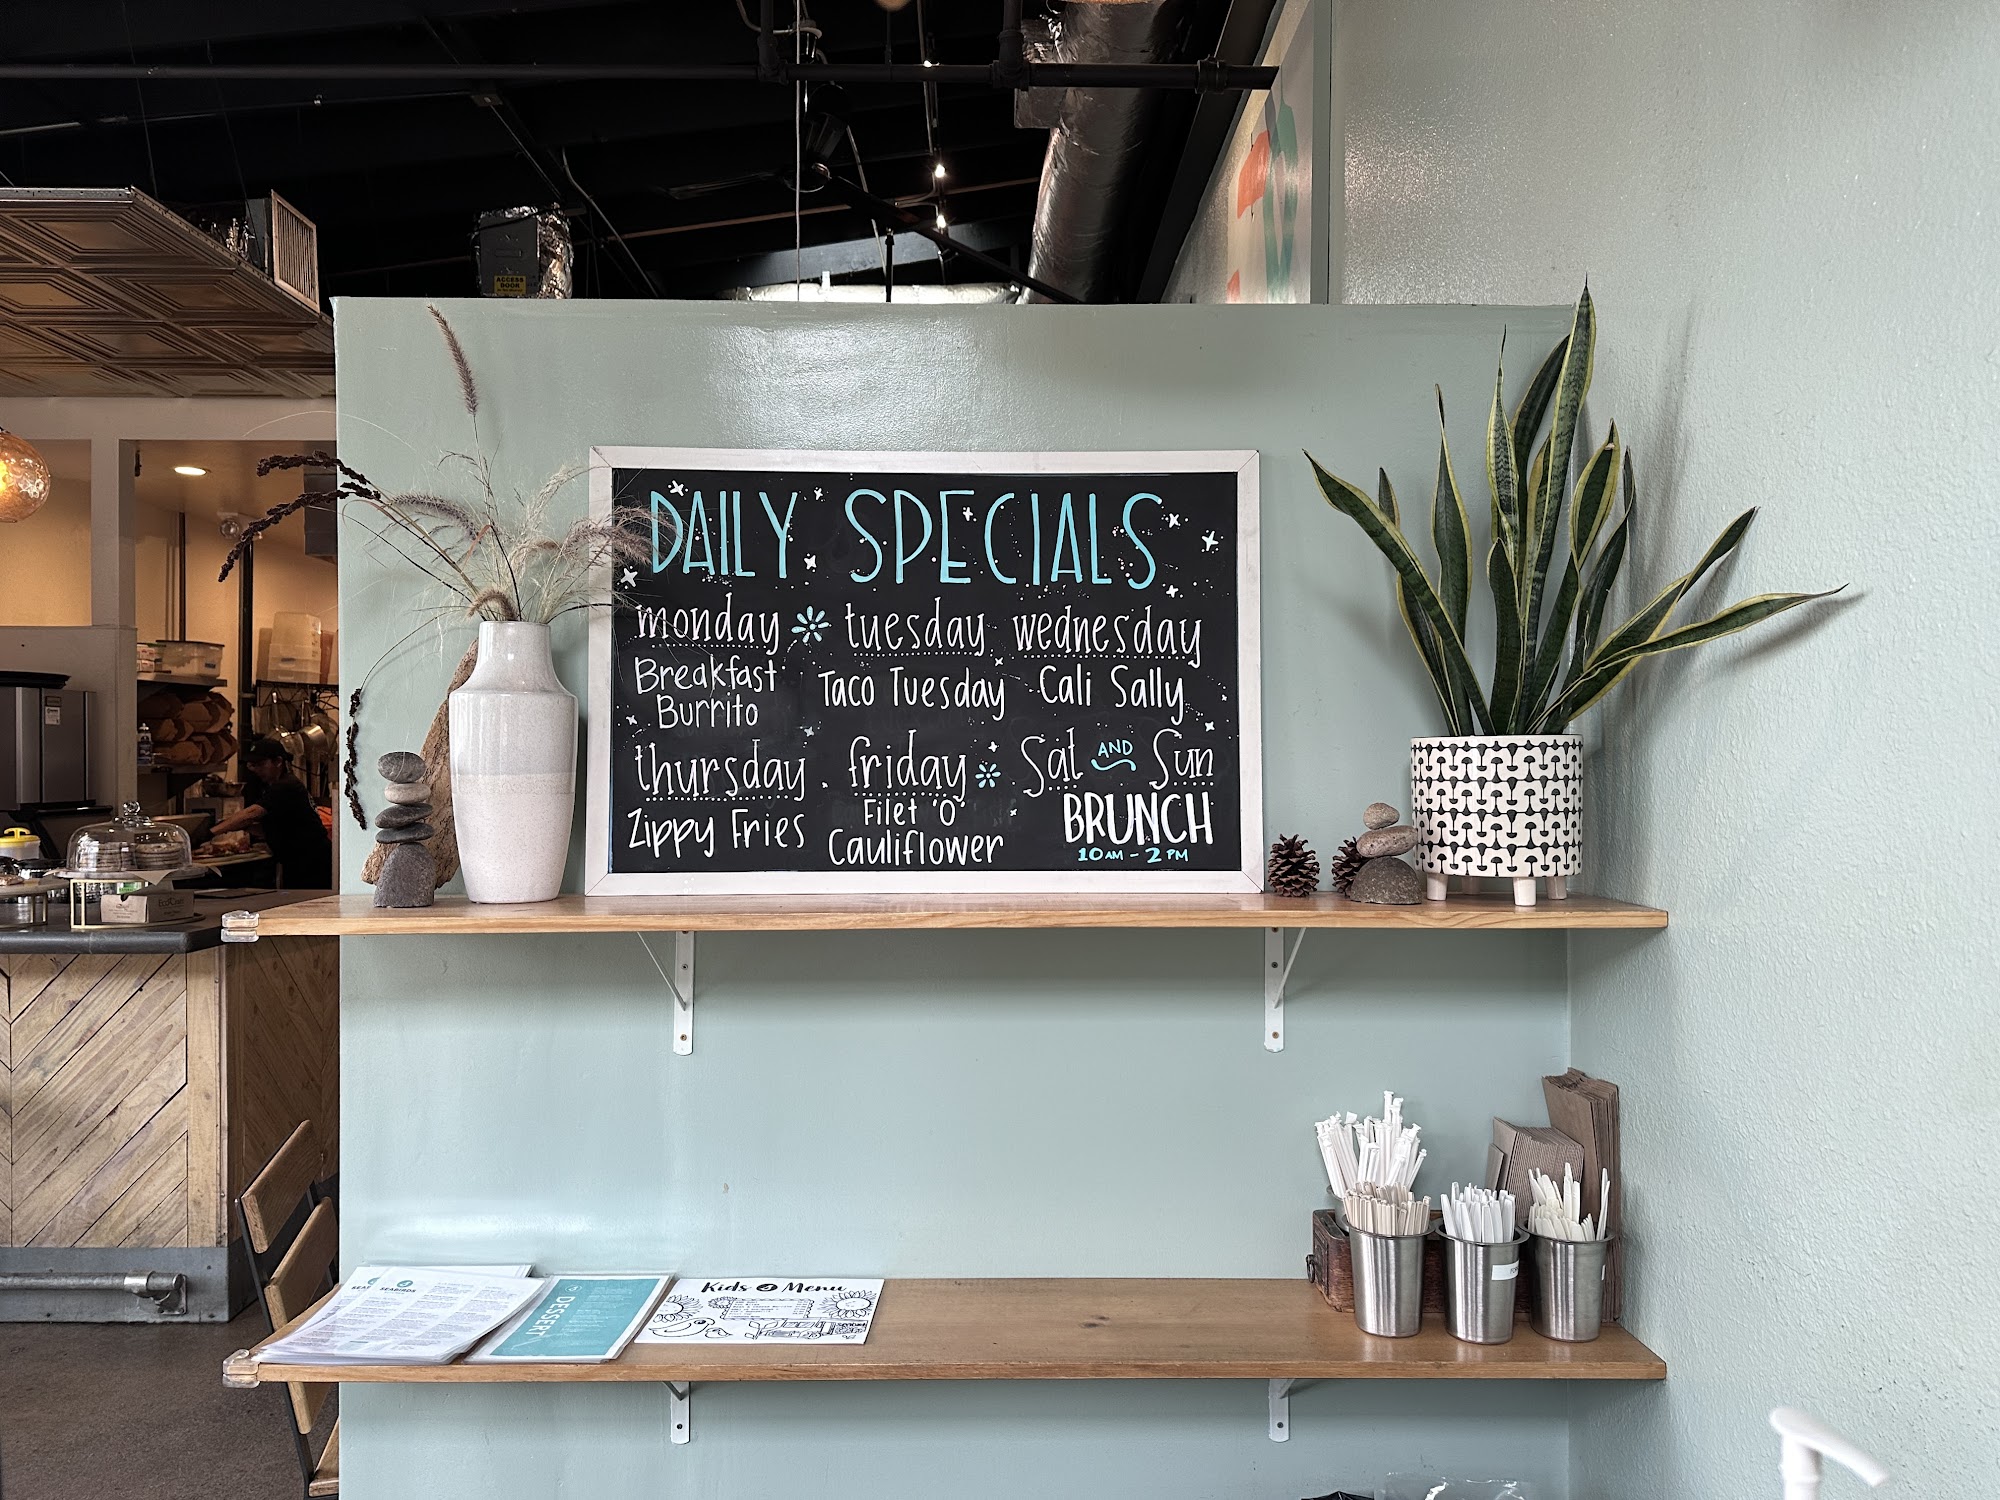 ACCESS
DOOR
DAILY SPECIALS
monday tuesday wednesday
Breakfast
Burrito
Taco Tuesday
Cali Sally
thursday friday Sat AND Sun
Zippy Fries
Filet 'O'
Cauliflower
BRUNCH
10 AM - 2 PM
SEABIRDS
DESSERT
Kids Menu